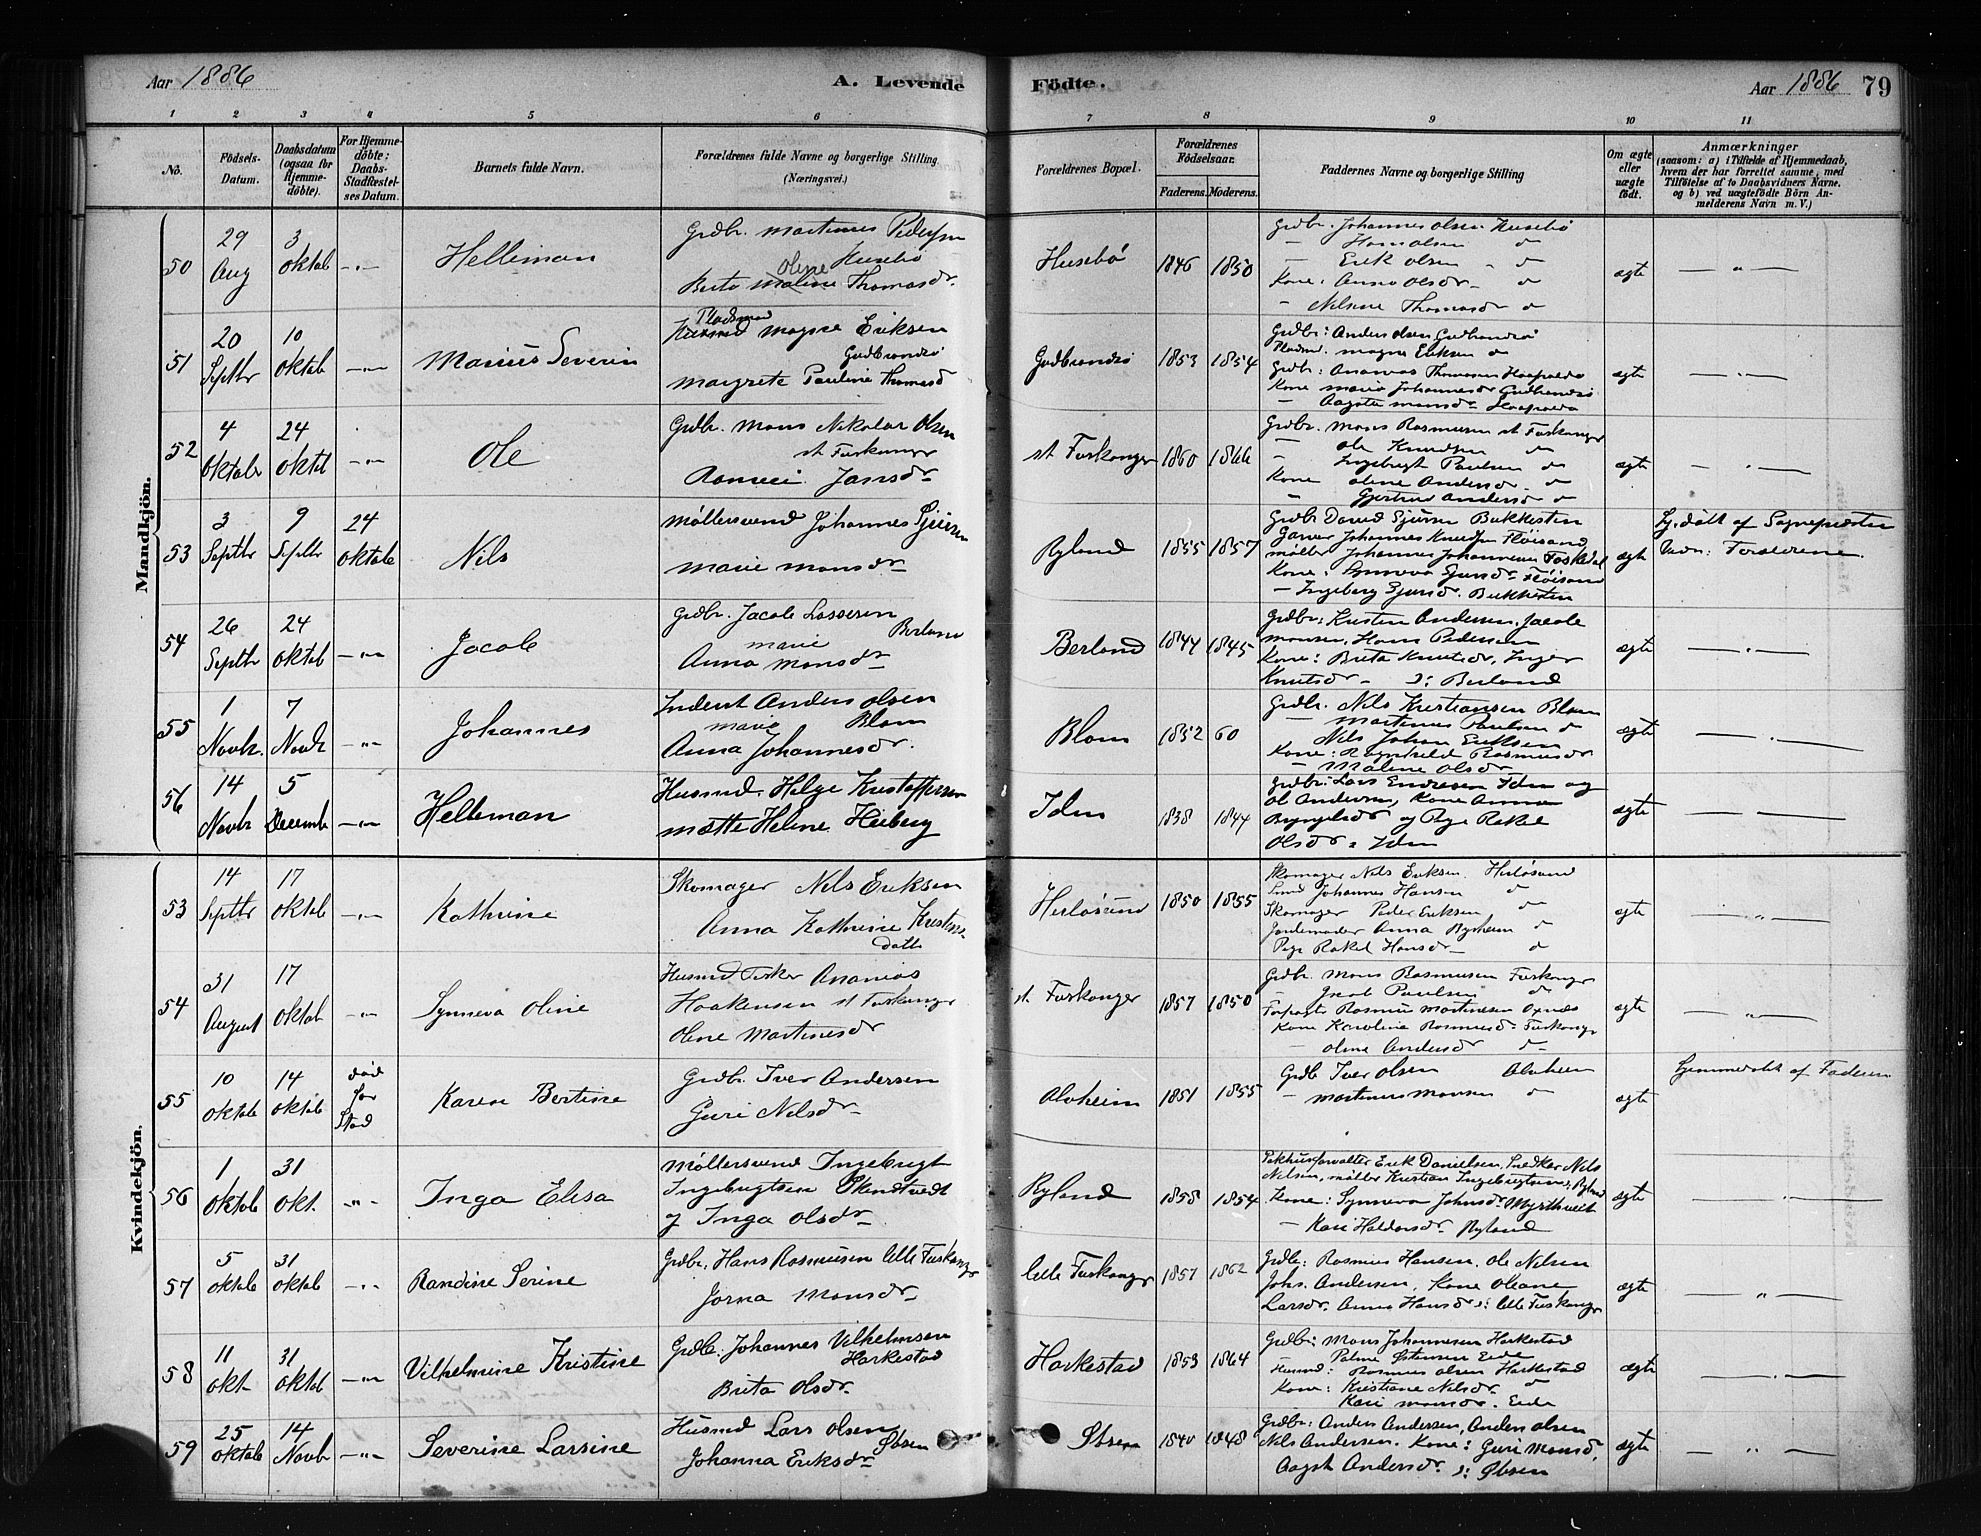 Aar 1886
A. Levende
Födte.
Aar 1886 79
1 2 3 4 5 6 7 8 9 10 11
No.
Födsels-
Datum.
Daabsdatum
(ogsaa for
Hjemme-
döbte).
For Hjemme-
döbte:
Daabs-
Stadfæstel-
ses Datum.
Barnets fulde Navn.
Forældrenes fulde Navne og borgerlige Stilling
(Næringsvei.)
Forældrenes Bopæl.
Forældrenes
Födselsaar.
Faderens. Moderens.
Faddernes Navne og borgerlige Stilling
Om ægte
eller
uægte
födt.
Anmærkninger
(saasom: a) i Tilfælde af Hjemmedaab,
hvem der har forrettet samme, med
Tilföielse af to Daabsvidners Navne.
og b) ved uægtefödte Börn An-
melderens Navn m. V.)
Mandkjön.
50
29
Aug
3
oktob
Helliman
Grdbr. Martinus Pedersen
Husebö
Olene
Berta Malene Thomasdr.
Husebö
1846 1850
Grdbr. Johannes Olsen Husebö
— Hans Olsen do
— Erik Olsen do
Kone: Anna Olsdr. do
— Nilsine Thomasdr do
ægte
51
20
Septbr
10
oktob
Marius Severin
Pladsmd
Husmd Magne Eriksen
Gudbrandsö
Margrete Pauline Thomasd
Gudbrandsö
1853 1854
Grdbr: Anders Olsen Gudbrandsö
Pladsmd. Magne Eriksen do
Grdbr: Ananias Thomassen
Kone Maria Johannesdr Gudbrandsö
— Aagsta Monsdr
ægte
52
4
Oktobr
24
oktbl
Ole
Grdbr. Mons Nikolai Olsen
st Fuskanger
Jansdr
st Fuskanger
1860 1866
Grdbr. Mons Rasmusen st Fuskanger
— Ole Knudsen do
— Ingebrigt Paulsen do
Kone Oline Andersdr. do
— Gjertrud Andersdr do
ægte
53
3
Septbr
9
Septbr
24
oktobe
Nils
Möllersvend Johannes
Marie Monsdr
Ryland
1855 1857
Grdbr David Sjursen Bukkesten
Garver Johannes Knudsen Flöisand
Möller Johannes Johannesen
Kone: Synneva Sjursdr Flöisand
— Ingeborg Sjursdr. Bukkesten
ægte
Hj.döbt af Sognepresten
Vidn: Forældrene
54
26
Septbr
24
oktob
Jacob
Grdbr. Jacob Lassesen
Berland
Marie
Anna Monsdr
Berland
1844 1845
Grdbr: Kristen Andersen, Jacob
Monsen, Hans Pedersen
Kone: Brita Knutsdr, Inger
Knutsdr — s: Berland
ægte
55
1
Novbr.
7
Novbr
Johannes
Inderst Anders Olsen
Marie Blom
Anna Johannesdr.
Blom
1852 60
Grdbr. Nils Kristiansen Blom
— Martinus Paulsen do
Nils Johan Eriksen
Kone: Ragnhild Rasmusdr
— Malene Olsdr
ægte
56
14
Novbr
5
Decemb
Helleman
Husmd. Helge Kristoffersen
Mætte Helene Heiberg
Iden
1838 1844
Grdbr: Lars Endresen Iden og
Ol Andersen, Kone Anna
Brynjelsdr og Pige Rakel
Olsdr s Iden
ægte
Kvindekjön.
53
14
Septbr
17
oktob
Kathrine
Skomager Nils Eriksen
Anna Kathrine Kristens-
datter
Herlösund
1850 1855
Skomager Nils Eriksen Herlösund
Smed Johannes Hansen do
Skomager Peder Eriksen do
Jordemoder Anna do
Pige Rakel Hansdr — do
ægte
54
31
August
17
oktob
Synneva Oline
Husmd Fisker Ananias
Haakensen st Fuskanger
Oline Martinusdr
st. Fuskanger
1857 1850
Grdbr. Mons Rasmusen Fuskanger
— Jacob Paulsen do
Rasmus Martinesen
Kone Karoline Rasmusdr Fuskangr
— Oline Andersdr do
ægte
55
10
oktob
14
oktob
död
för
Stad
Karen Bertine
Grdbr. Iver Andersen
Guri Nilsdr
Alvheim
1851 1855
Grdb Iver Olsen Alvheim
— Martinus Monsen do
ægte
Hjemmedöbt af Faderen
56
1
Oktob
31
okt.
Inga Elisa
Möllersvend Ingebrigt
Ingebrigtsen
og Inga Olsdr
Ryland
1858 1854
Pakhusforvalter Erik Danielsen, Snedker Nils
Nilsen, Möller Kristian Ingebrigtsen, Ryland
Kone: Synneva Johnsdr Myrthveit
— Kari Haldorsdr. Ryland
ægte
57
5
oktob
31
oktob
Randine Serine
Grdbr. Hans Rasmusen lille Fuskangr
Jorna Monsdr
lille Fuskangr
1857 1862
Grdbr: Rasmus Hansen. Ole Nilsen
Johs. Andersen, Kone Oleane
Larsdr. Anna Hansdr s: lille Fuskangr
ægte
58
11
okt.
31
oktbl
Vilhelmine Kristine
Grdb: Johannes Vilhelmsen
Harkestad
Brita Olsdr.
Harkestad
1853 1864
Grdbr: Mons Johannesen Harkestad
Eide
Husmd: Rasmus Olsen Harkestad
Kone: Kristiane Nilsdr. do
Kari Monsdr. Eide
ægte
59
25
oktob
14
Novbr
Severine Larsine
Husmd Lars Olsen
Öbsen
Johanna Eriksdr
Öbsen
1840 1848
Grdbr: Anders Andersen, Anders Olsen
Nils Andersen. Kone: Guri Monsd,
Aagst Andersdr. s: Öbsen
ægte